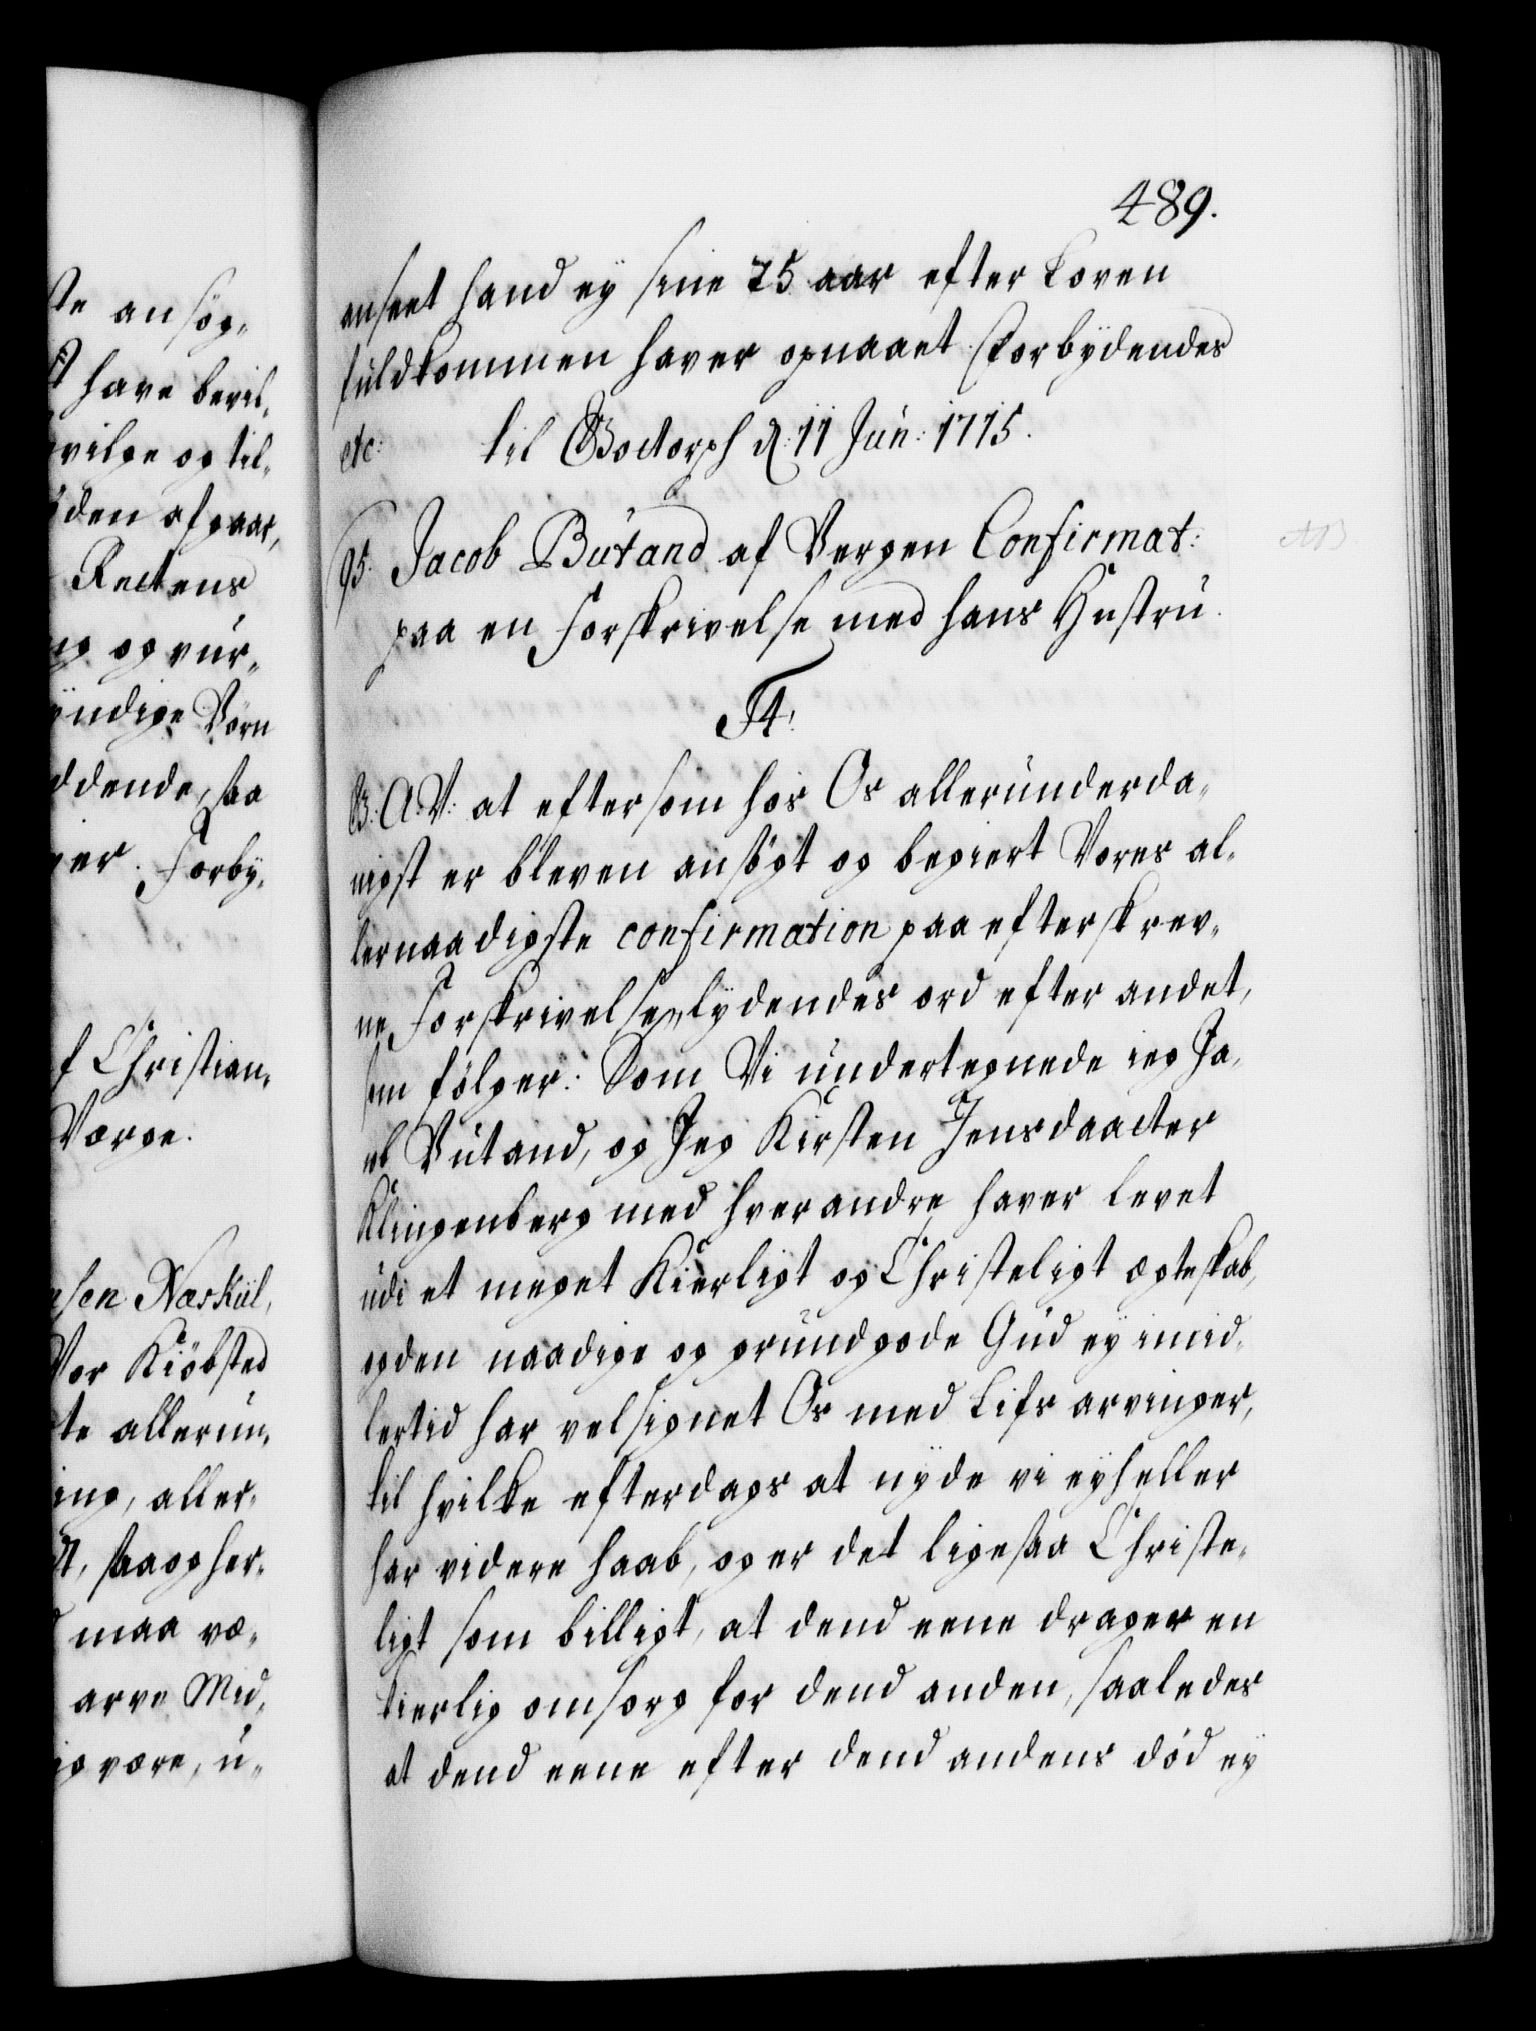 489.
anseet hand ey sine 25 aar efter Loven
fuldkommen haver opnaaet. Forbydendes
etc: til Gottorph d: 11 Jun: 1715.
95. Jacob Butand af Bergen Confirmat:
paa en Forskrivelse med hans Hustru.
F4.
G: A: V: at eftersom hos Os allerunderda„
nigst er bleven ansögt og begiert Vores al„
lernaadigste confirmation paa efterskrev„
ne Forskrivelse, lydendes ord efter andet,
som fölger: Som Vi undertegnede ieg Ja„
cob Butand, og Jeg Kirsten Jensdaatter
Klingenberg med hverandre haver levet
udi et meget Kierligt og Christeligt ægteskab,
og den naadige og grundgode Gud ey imid„
lertid har velsignet Os med Lifs arvinger,
til hvilke efterdags at nyde vi ey heller
har videre haab, og er det ligesaa Christe„
ligt som billigt, at dend eene drager en
kierlig omsorg for dend anden, saaledes
at dend eene efter dend andens död ey
ste ansög„
have bevil„
vilge og til„
den afgaar,
Rettens
og vur„
yndige Börn
ddende, saa
er. Forby„
f Christian„
Værge.
nsen Næskiil,
Vor Kiöbsted
te allerun„
ing, aller„
t, saa og her„
maa væ„
arve Mid„
g være, u„